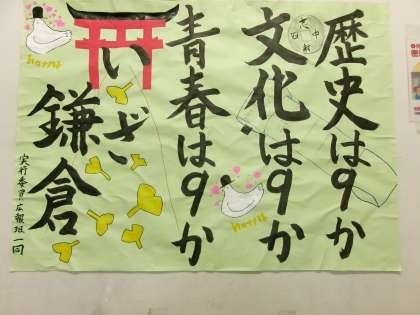 歴史は9か
文化は9か
青春は9か
いざ
鎌倉
実行委員広報班一同
hato
hato